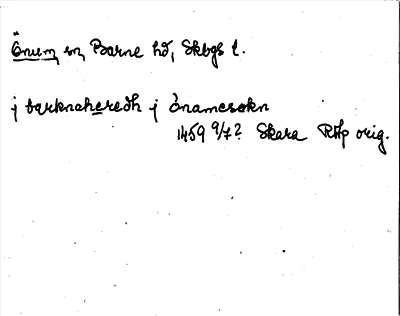 Önum sn, Barne hd, Skbgs l.
j barknaheredh j ónamesokn
1459 9/7? Skara RAp orig.